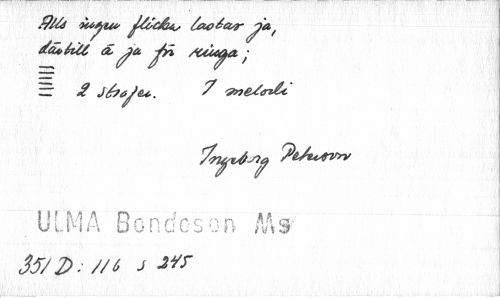 Alls ingen flicka lastar ja,
därtill ä ja för ringa;
2 strofer. 1 melodi
Ingeborg Peterson
ULMA Bondeson Ms
351 D: 116 s 245